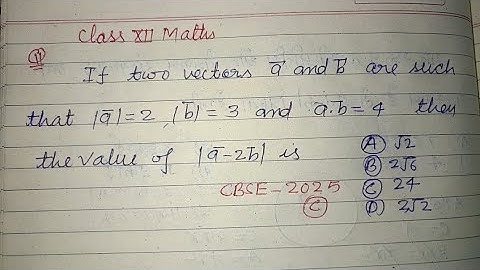 Class XII Maths
Q If two vectors a⃗ and b⃗ are such
that |a̅|=2, |b̅|=3 and a̅.b̅=4 then
the value of |a̅-2b̅| is
(A) √2
(B) 2√6
(C) 24
(D) 2√2
CBSE-2025
(C)